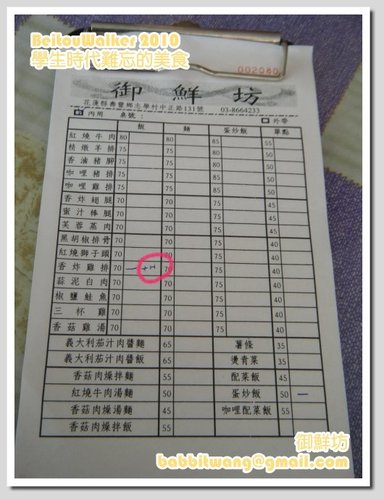 BeitouWalker 2010
學生時代難忘的美食
002080
御鮮坊
花蓮縣壽豐鄉志學村中正路131號 03-8664233
內用 桌號 外帶
飯 麵 蛋炒飯 單點
紅燒牛肉 80 80 85
枝燉羊排 75 75
香滷豬腳 75 75
咖哩豬排 75 75
咖哩雞排 75 75
香炸翅腿 70 70 75 45
蜜汁棒腿 70 70 75 45
芙蓉蒸肉 70 70 75
黑胡椒排骨 70 70 75 40
紅燒獅子頭 70 70 75 40
香炸雞排 70 一 75 40
蒜泥白肉 70 70 75 40
椒鹽鮭魚 70 70 75 40
三杯雞 70 70 75 40
香菇雞湯 70 70 75 40
義大利茄汁肉醬麵 65 薯條 35
義大利茄汁肉醬飯 65 燙青菜 35
香菇肉燥拌麵 45 配菜飯 45
紅燒牛肉湯麵 50 蛋炒飯 50 一
香菇肉燥湯麵 45 咖哩配菜飯 55
香菇肉燥拌飯 55
御鮮坊
babbitwang@gmail.com